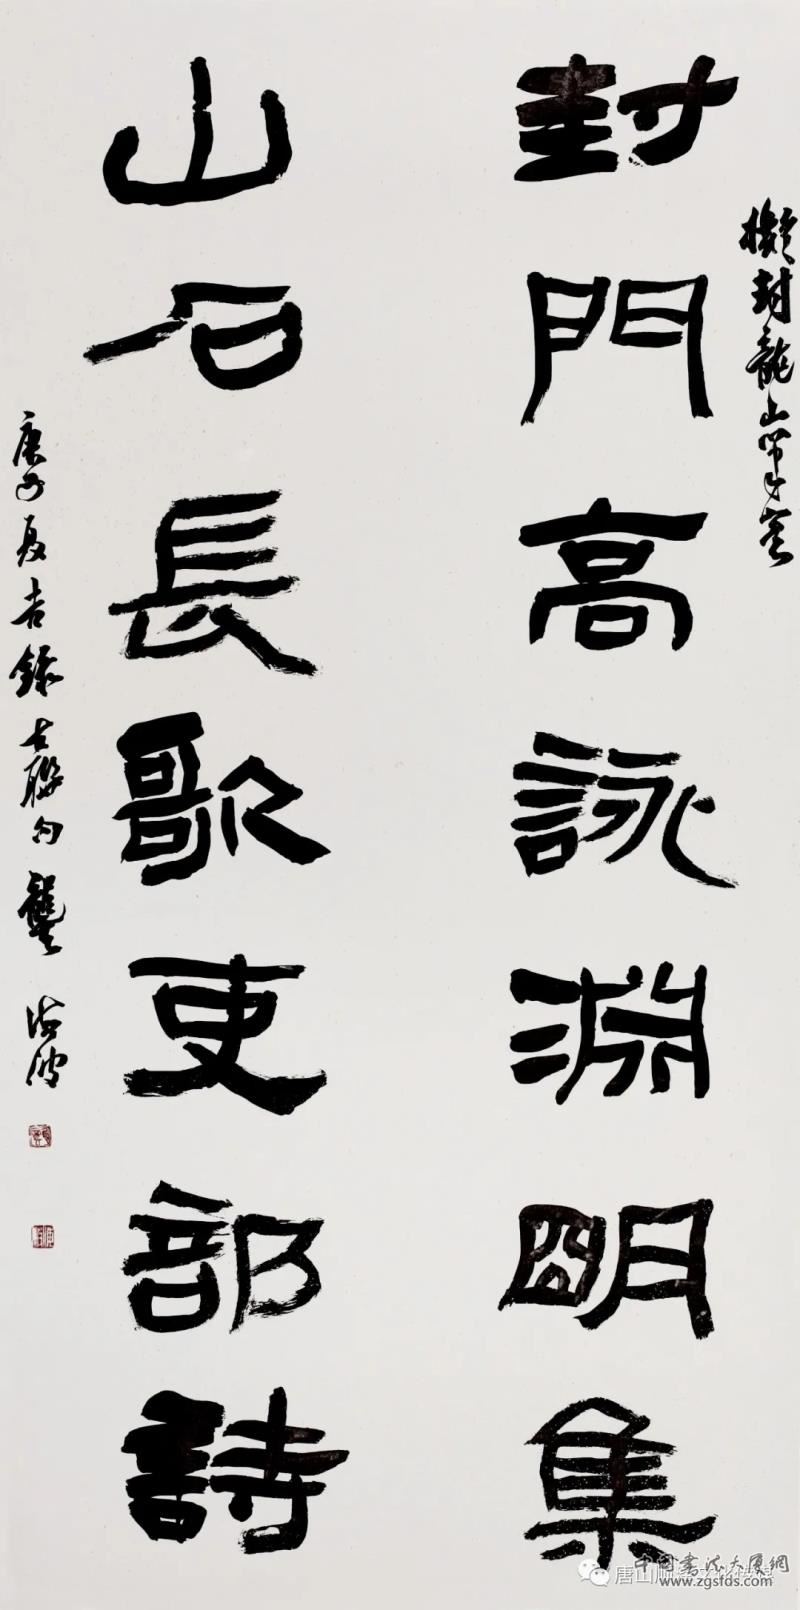 擬封龍山筆意
封門高詠淵明集
山石長歌吏部詩
庚子夏吉錄古聯句龔海波
中国书法大厦網
www.zgsfds.com
唐山